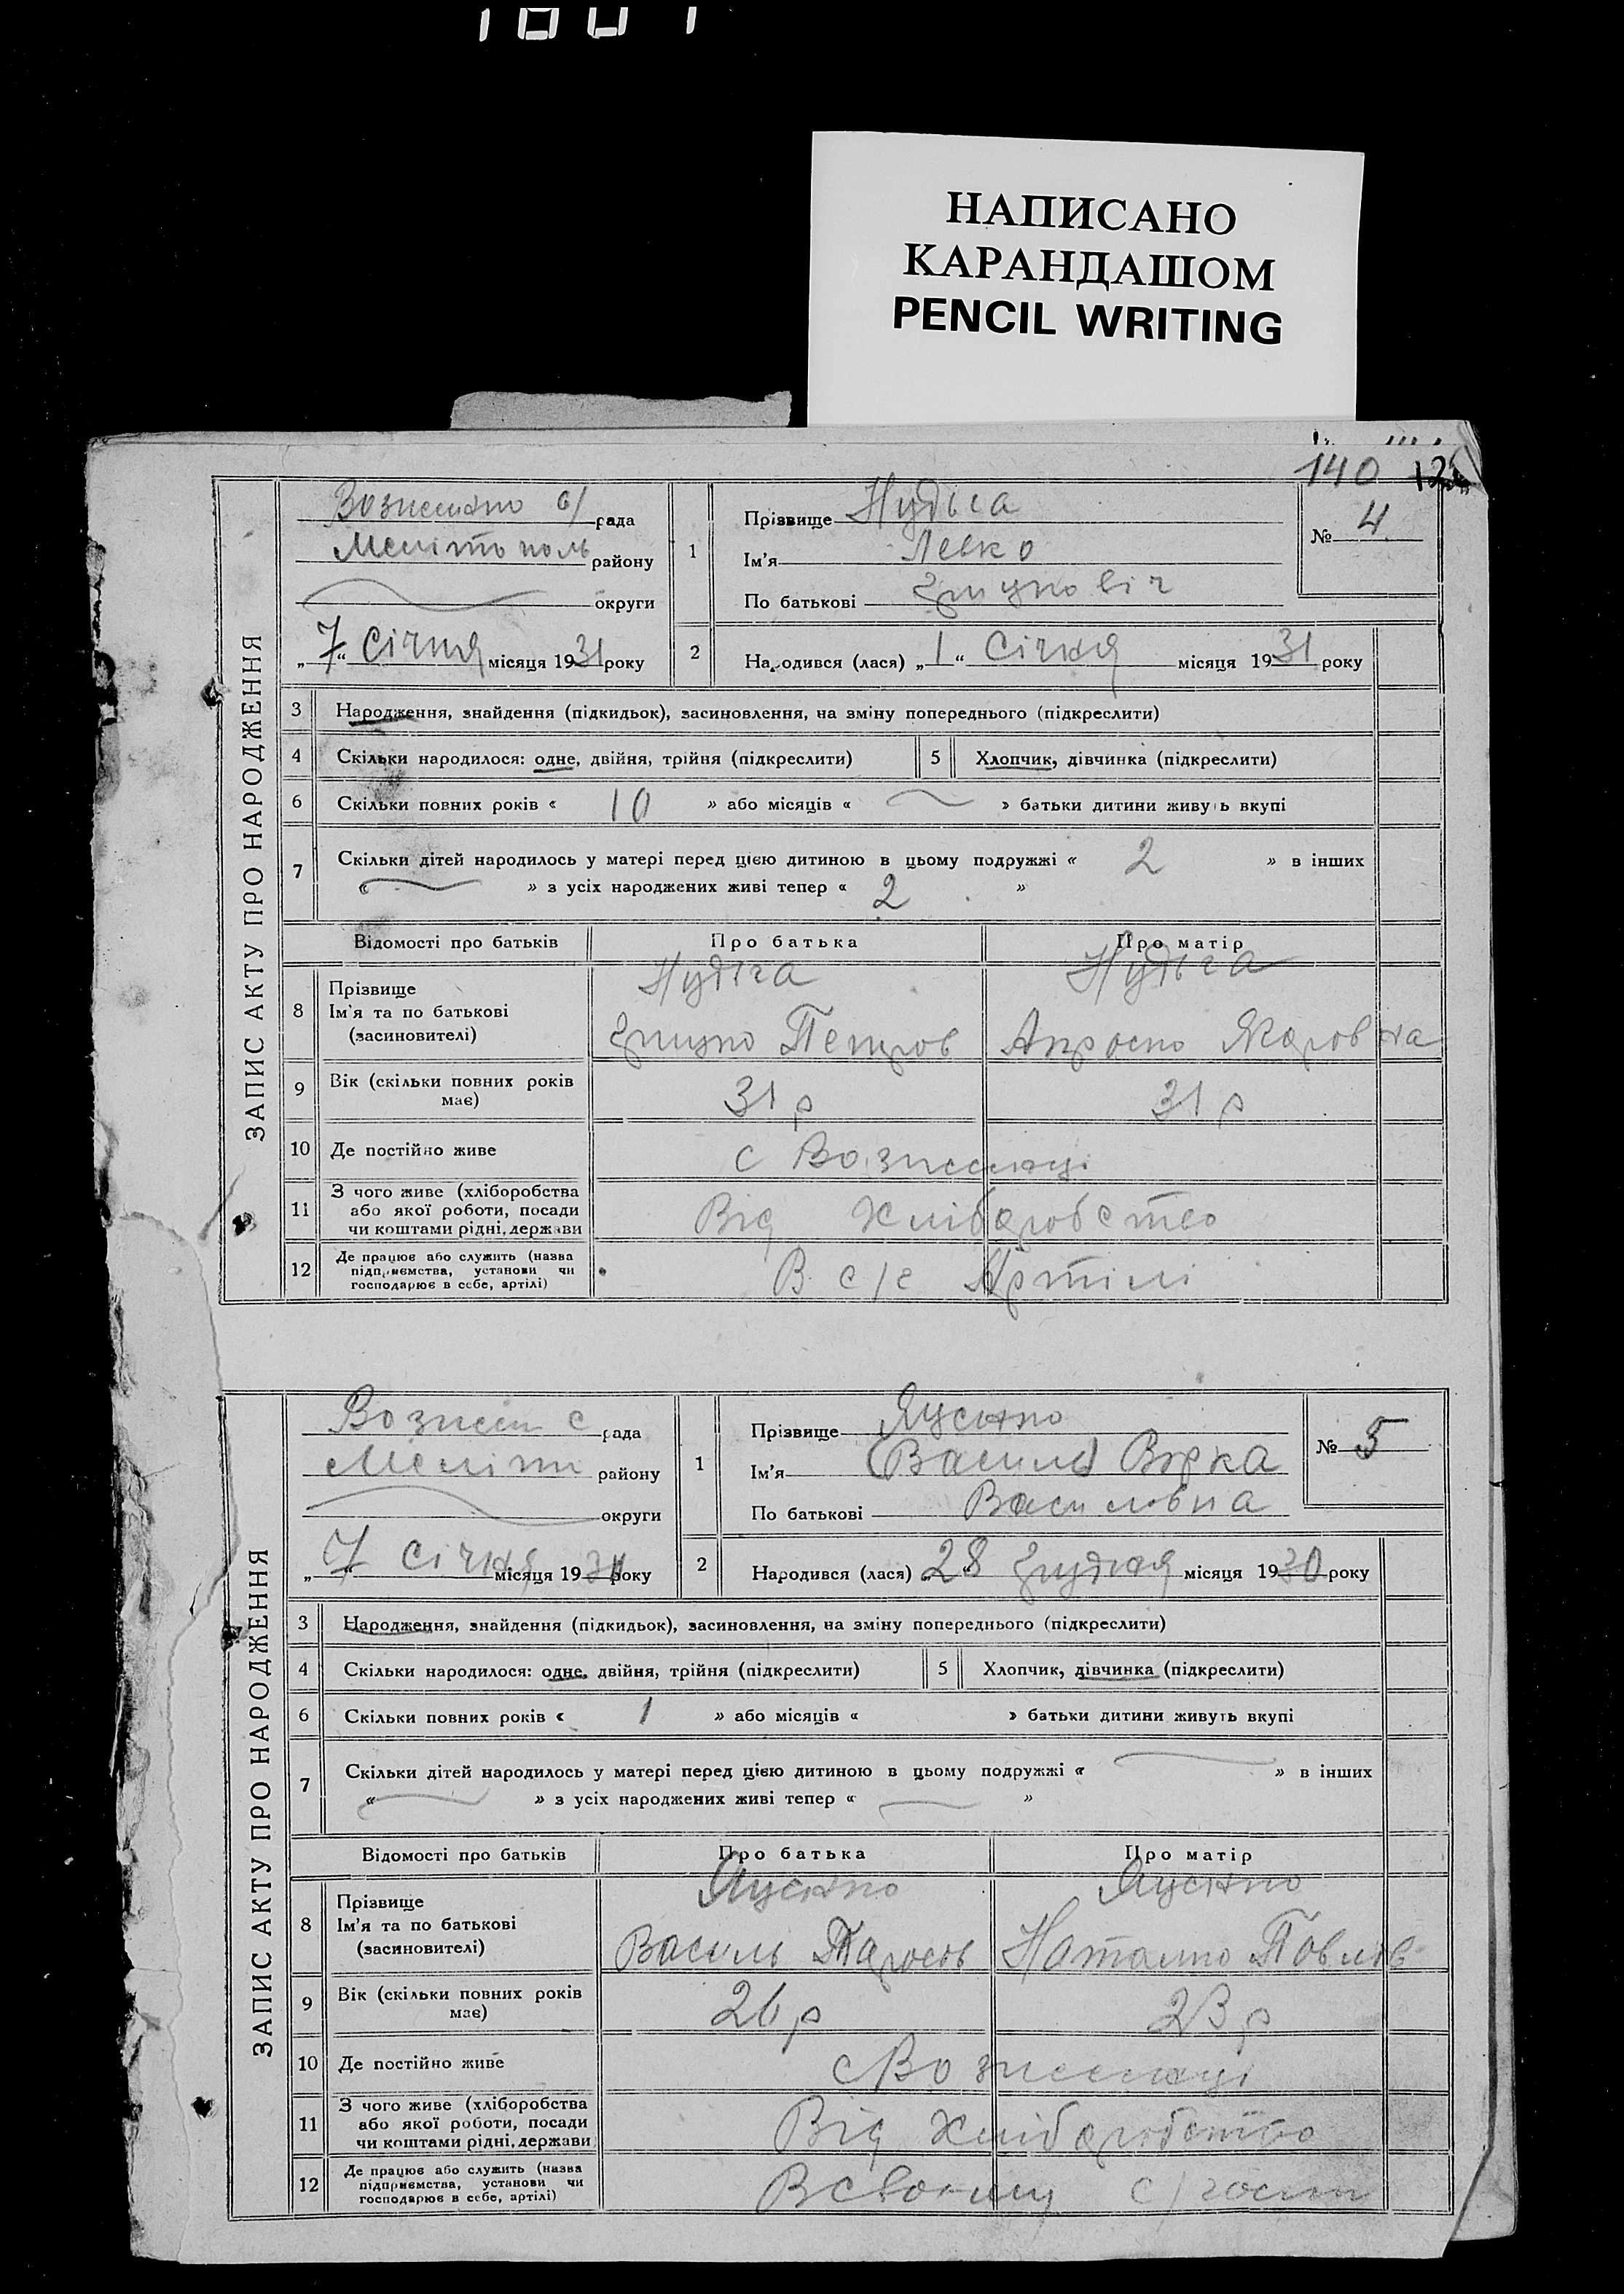 НАПИСАНО
КАРАНДАШОМ
PENCIL WRITING
140
ЗАПИС АКТУ ПРО НАРОДЖЕННЯ
с/ рада
Мелітополь району
округи
„7“ Січня місяця 1931 року
1
Прізвище Нудьга
Ім'я Левко
По батькові Грицковіч
№ 4
2
Народився (лася) „1“ Січня місяця 1931 року
3 Народження, знайдення (підкидьок), засиновлення, на зміну попереднього (підкреслити)
4 Скільки народилося: одне, двійня, трійня (підкреслити) 5 Хлопчик, дівчинка (підкреслити)
6 Скільки повних років « 10 » або місяців « » батьки дитини живуть вкупі
7 Скільки дітей народилось у матері перед цією дитиною в цьому подружжі « 2 » в інших
« » з усіх народжених живі тепер « 2 »
Відомості про батьків Про батька Про матір
8 Прізвище Нудьга Нудьга
Ім'я та по батькові
(засиновителі) Грицко Петров
9 Вік (скільки повних років має) 31 р 31 р
10 Де постійно живе с Вознесенці
11 З чого живе (хліборобства
або якої роботи, посади
чи коштами рідні, держави Від Хліборобство
12 Де працює або служить (назва
підприємства, установи чи
господарює в себе, артілі) В с/г Артілі
ЗАПИС АКТУ ПРО НАРОДЖЕННЯ
Вознесен с рада
Меліт району
округи
„7“ січня місяця 1931 року
1
Прізвище
Ім'я Василь Вірка
По батькові Василовна
№ 5
2
Народився (лася) „28“ Грудня місяця 1930 року
3 Народження, знайдення (підкидьок), засиновлення, на зміну попереднього (підкреслити)
4 Скільки народилося: одне, двійня, трійня (підкреслити) 5 Хлопчик, дівчинка (підкреслити)
6 Скільки повних років « 1 » або місяців « » батьки дитини живуть вкупі
7 Скільки дітей народилось у матері перед цією дитиною в цьому подружжі « » в інших
« » з усіх народжених живі тепер « »
Відомості про батьків Про батька Про матір
8 Прізвище
Ім'я та по батькові
(засиновителі) Василь Тарасов Наталко Павлов
9 Вік (скільки повних років має) 26 р 23 р
10 Де постійно живе с Вознесенці
11 З чого живе (хліборобства
або якої роботи, посади
чи коштами рідні, держави Від Хліборобство
12 Де працює або служить (назва
підприємства, установи чи
господарює в себе, артілі) В своему с/госп